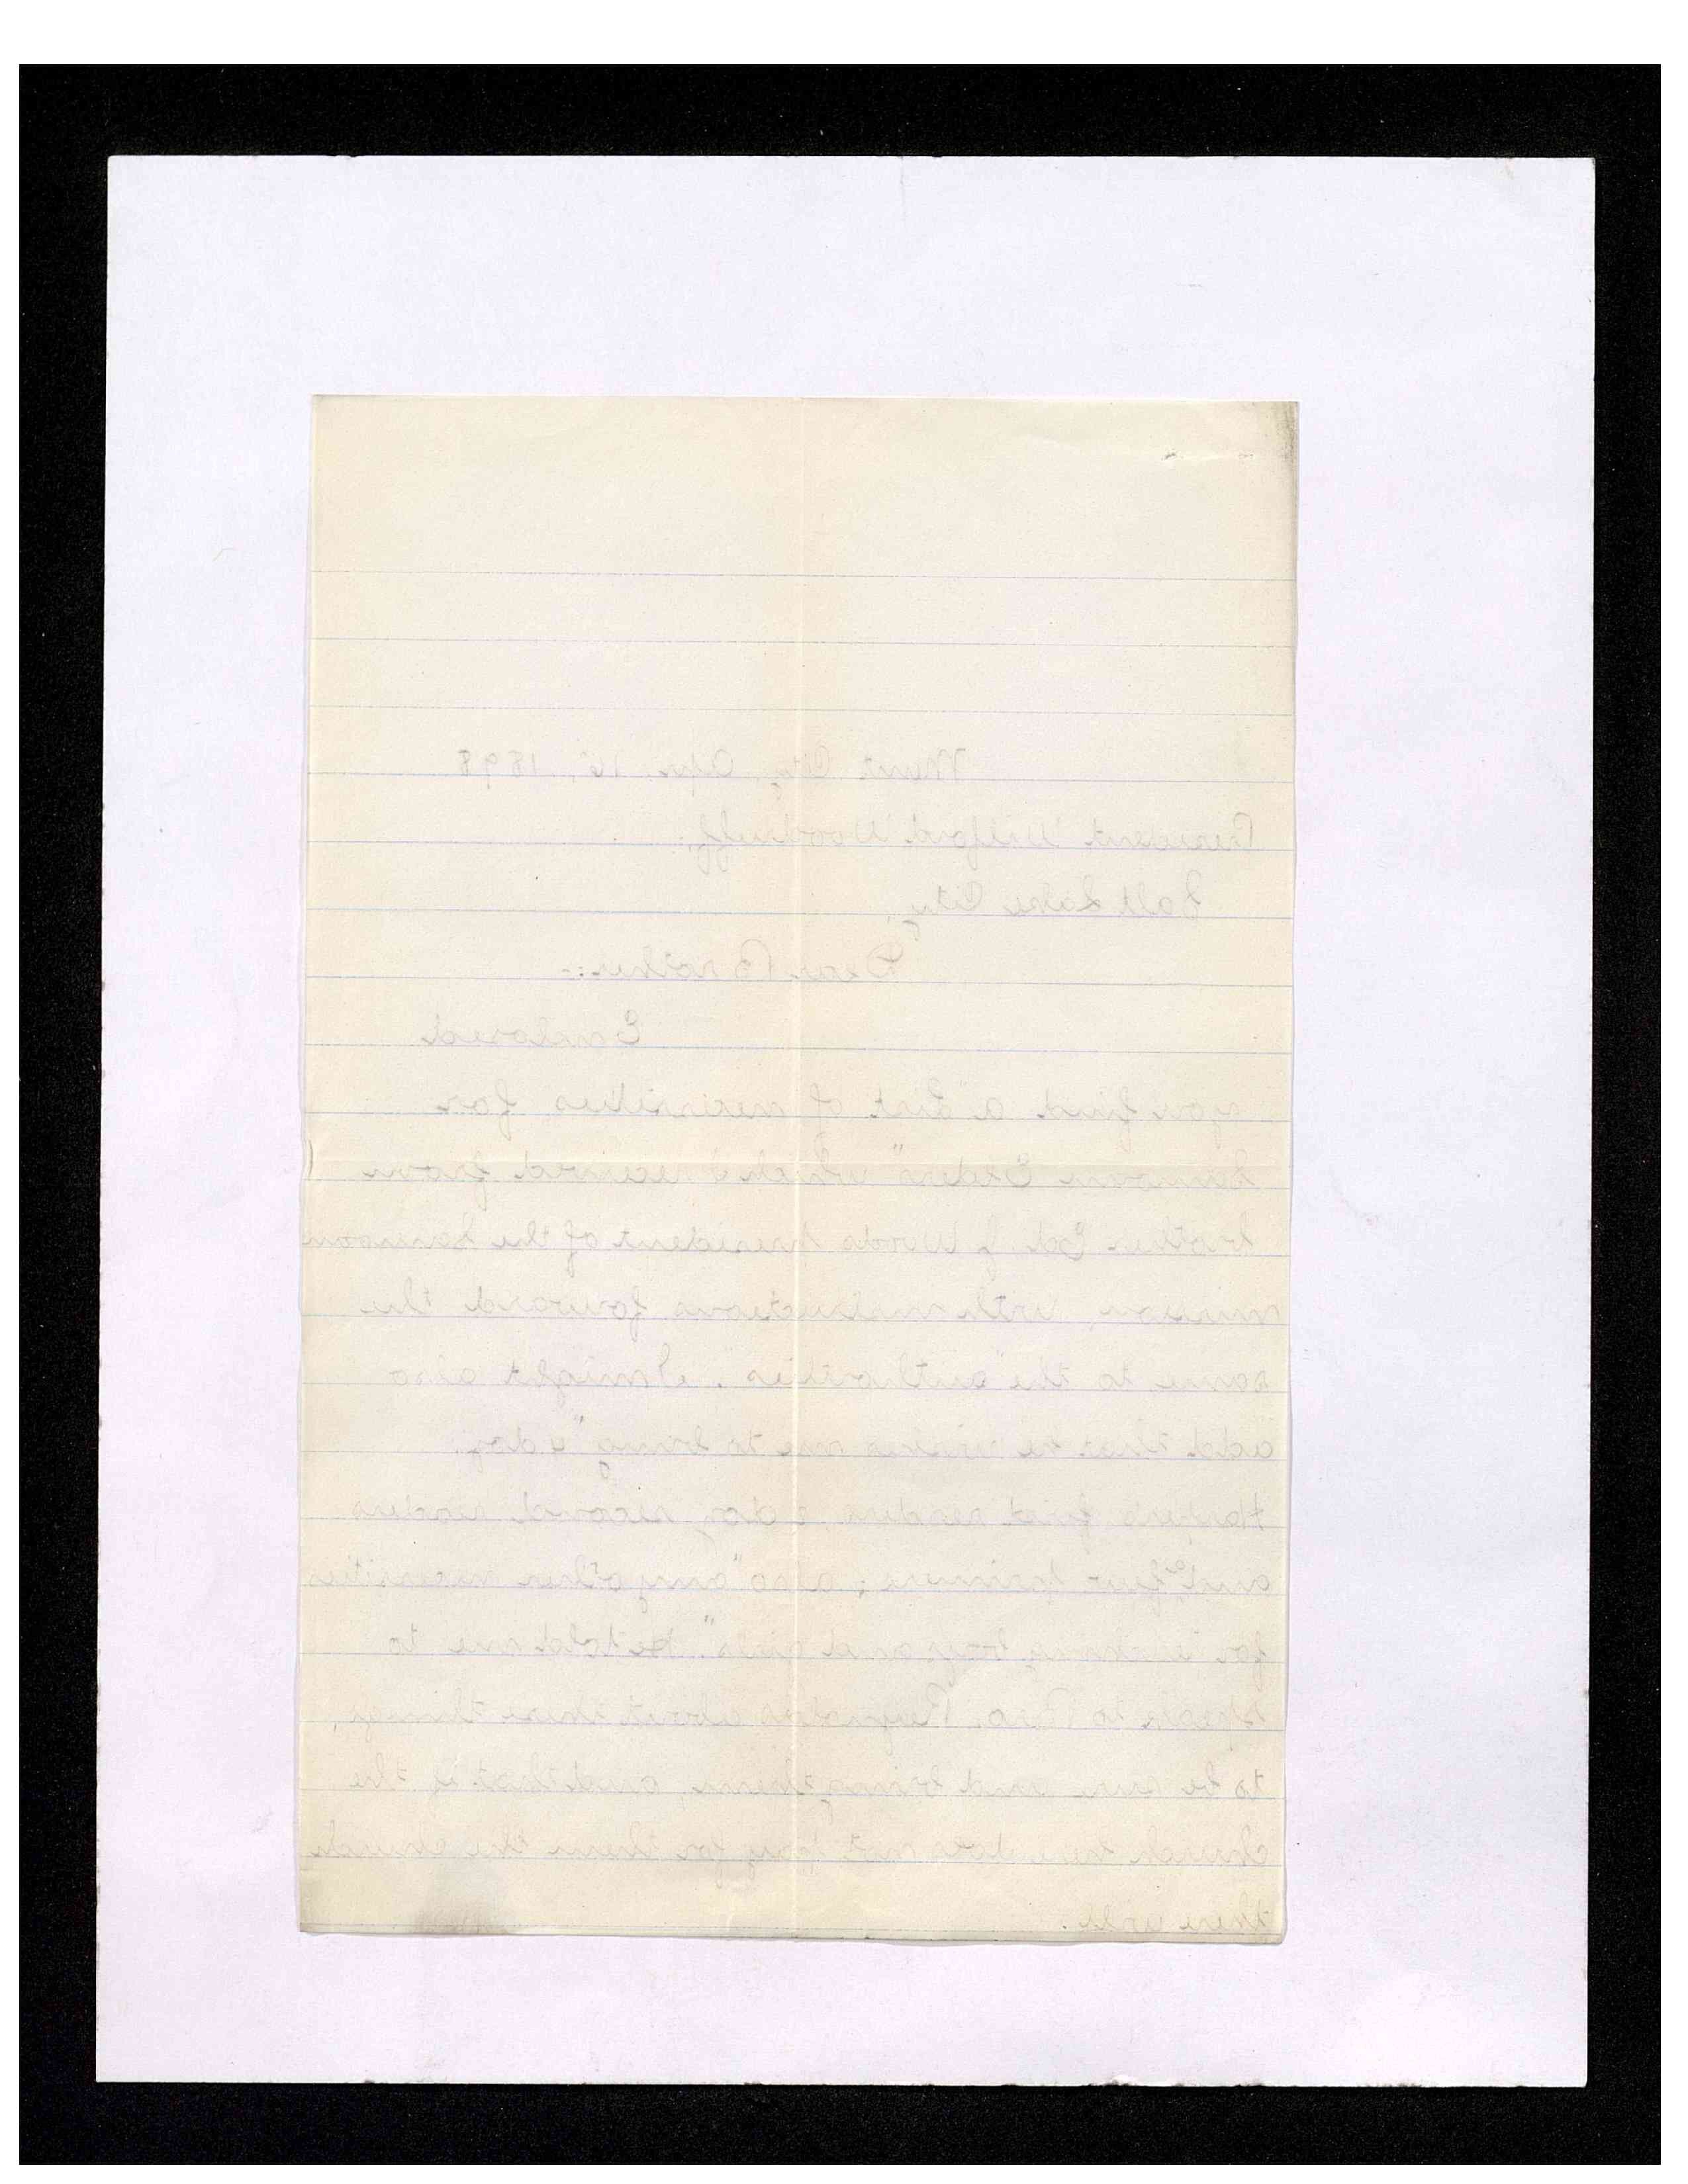 Apr. 16, 1898
President Wilford Woodruff,
Salt Lake City,
Dear Brother:-
Enclosed
you find a list of necessities for
Samoan Elders" which I received from
brother Ed. J. Wood president of the Samoan
mission, with instructions forward the
same to the "authorities". I might also
add that he wishes me to bring "4 doz.
Harper's first readers, 2 doz second readers
and few primers; also "any other necessities
for teaching boys and girls". He told me to
speak to Bro. Reynolds about these things,
to be sure and bring them, and that if the
church here does not pay for them the church
there will.